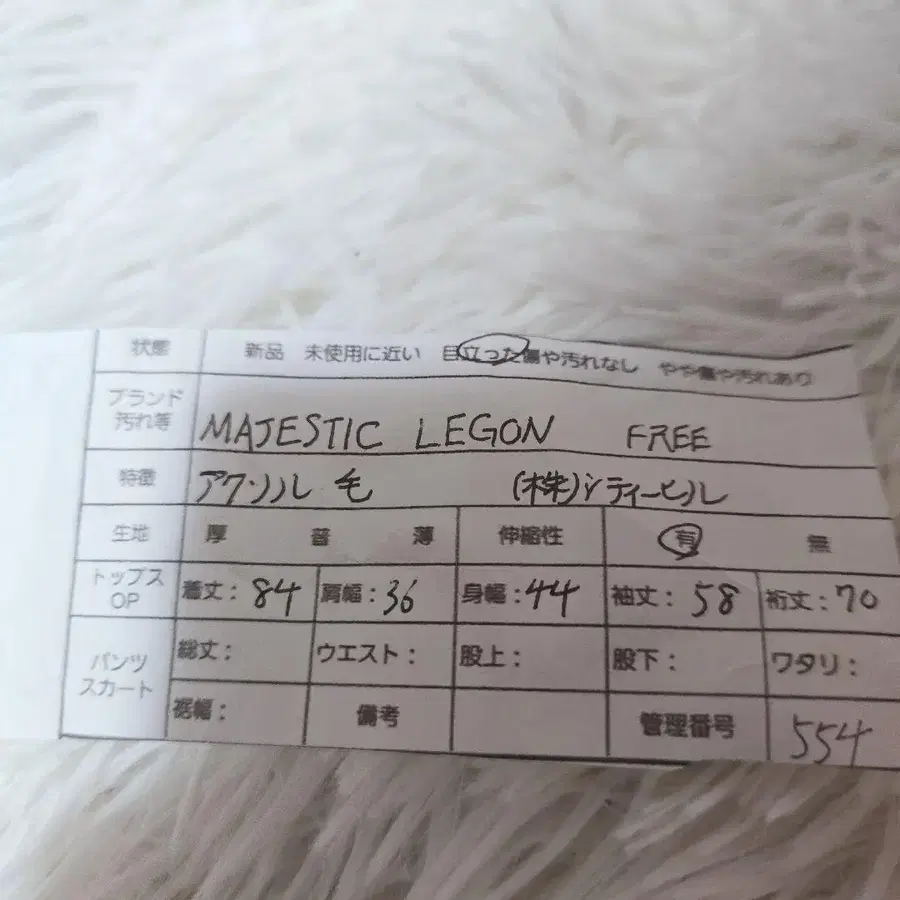 状態 新品 未使用に近い 目立った傷や汚れなし やや傷や汚れあり
ブランド 汚れ等 MAJESTIC LEGON FREE
特徴 アクリル 毛 (株)シティーヒル
生地 厚 普 薄 伸縮性 有 無
トップス OP 着丈: 84 肩幅: 36 身幅: 44 袖丈: 58 裄丈: 70
パンツ スカート 総丈: ウエスト: 股上: 股下: ワタリ:
裾幅: 備考 管理番号 554